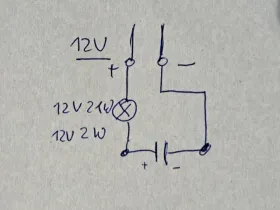 12V
+ −
12V 21W
12V 2W
+ −